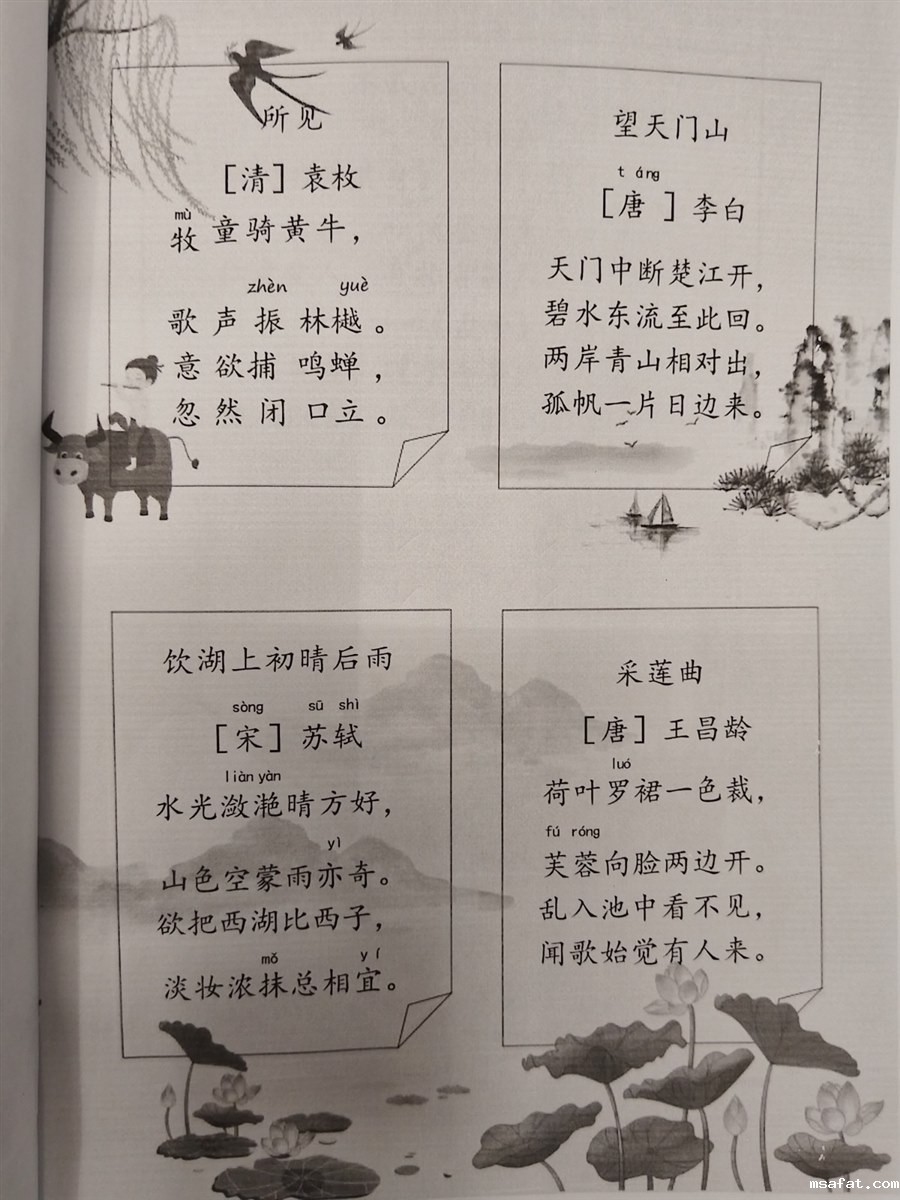 所见
[清] 袁枚
mù
牧童骑黄牛，
zhèn yuè
歌声振林樾。
意欲捕鸣蝉，
忽然闭口立。
望天门山
táng
[唐] 李白
天门中断楚江开，
碧水东流至此回。
两岸青山相对出，
孤帆一片日边来。
饮湖上初晴后雨
sòng sū shì
[宋] 苏轼
liàn yàn
水光潋滟晴方好，
yì
山色空蒙雨亦奇。
欲把西湖比西子，
mǒ yí
淡妆浓抹总相宜。
采莲曲
[唐] 王昌龄
luó
荷叶罗裙一色裁，
fú róng
芙蓉向脸两边开。
乱入池中看不见，
闻歌始觉有人来。
msafat.com